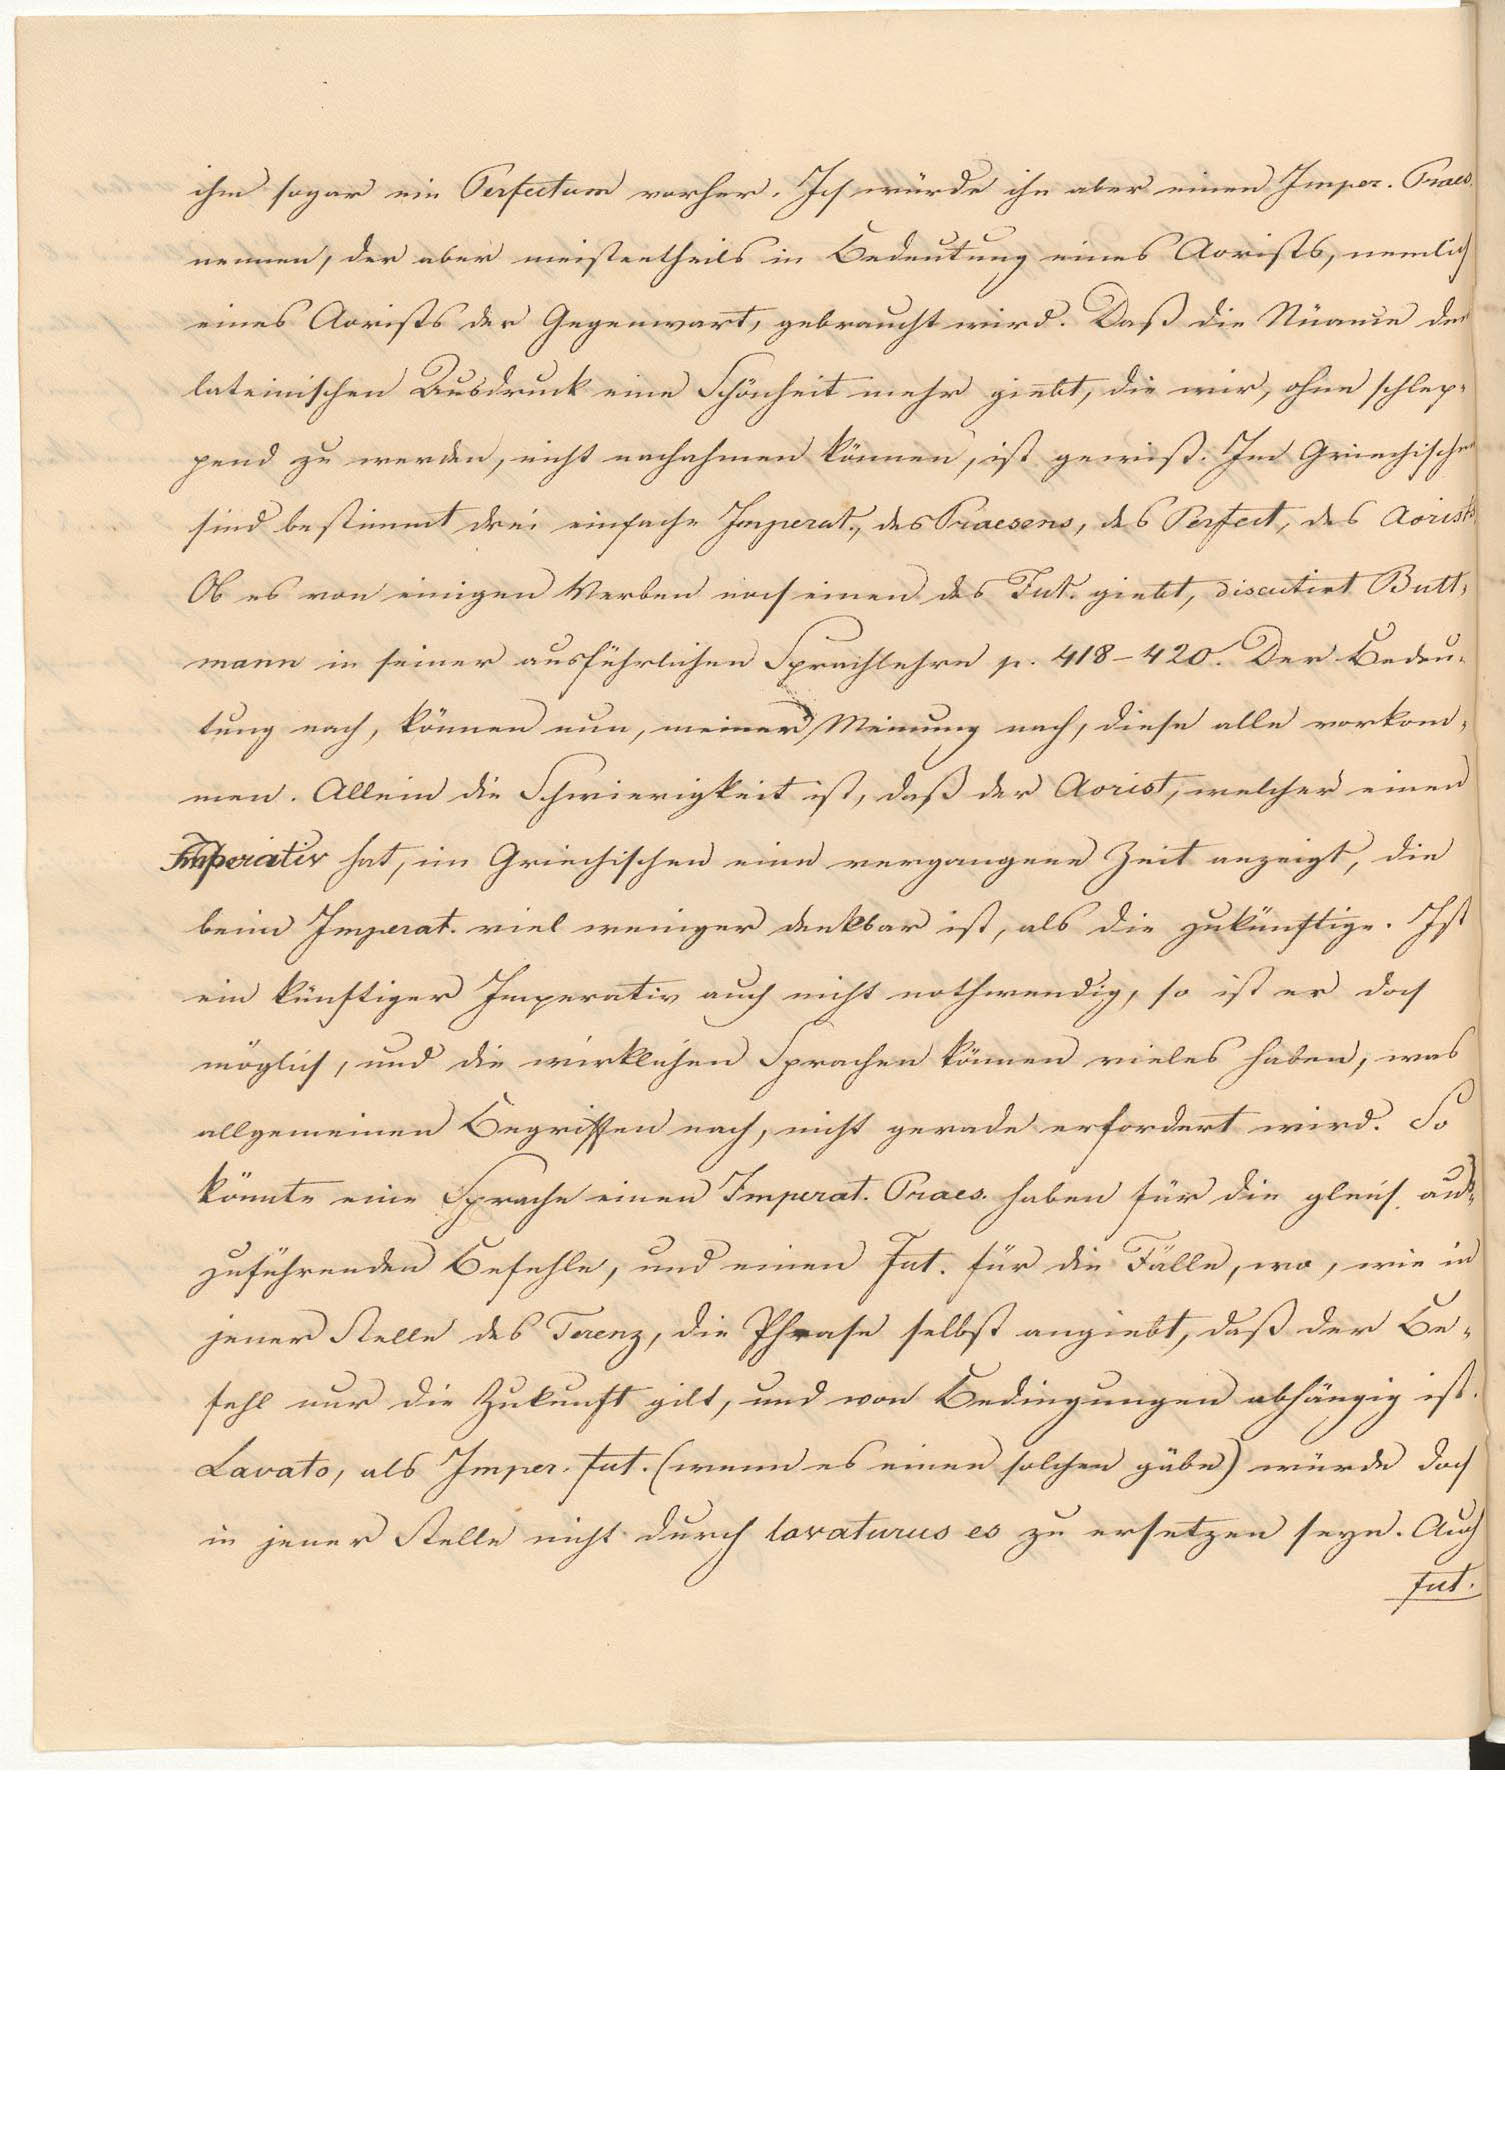 ihm sogar ein Perfectum vorher. Ich würde ihn aber einen Imper. Praes.
nennen, der aber meistentheils in Bedeutung eines Aorists, nemlich
eines Aorists der Gegenwart, gebraucht wird. Daß die Nüance dem
lateinischen Ausdruck eine Schönheit mehr giebt, die wir, ohne schlep-
pend zu werden, nicht nachahmen können, ist gewiß. Im Griechischen
sind bestimmt drei einfache Imperat., des Praesens, des Perfect, des Aorists.
Ob es von einigen Verben noch einen des Fut. giebt, discutirt Butt-
mann in seiner ausführlichen Sprachlehre p. 418–420. Der Bedeu-
tung nach, können nun, meiner Meinung nach, diese alle vorkom-
men. Allein die Schwierigkeit ist, daß der Aorist, welcher einen
Imperativ hat, im Griechischen eine vergangene Zeit anzeigt, die
beim Imperat. viel weniger denkbar ist, als die zukünftige. Ist
ein künftiger Imperativ auch nicht nothwendig, so ist er doch
möglich, und die wirklichen Sprachen können vieles haben, was
allgemeinen Begriffen nach, nicht gerade erfordert wird. So
könnte eine Sprache einen Imperat. Praes. haben für die gleich aus-
zuführenden Befehle, und einen Fut. für die Fälle, wo, wie in
jener Stelle des Terenz, die Phrase selbst angiebt, daß der Be-
fehl nur die Zukunft gilt, und von Bedingungen abhängig ist.
Lavato, als Imper. fut. (wenn es einen solchen gäbe) würde doch
in jener Stelle nicht durch lavaturus es zu ersetzen seyn. Auch
fut.